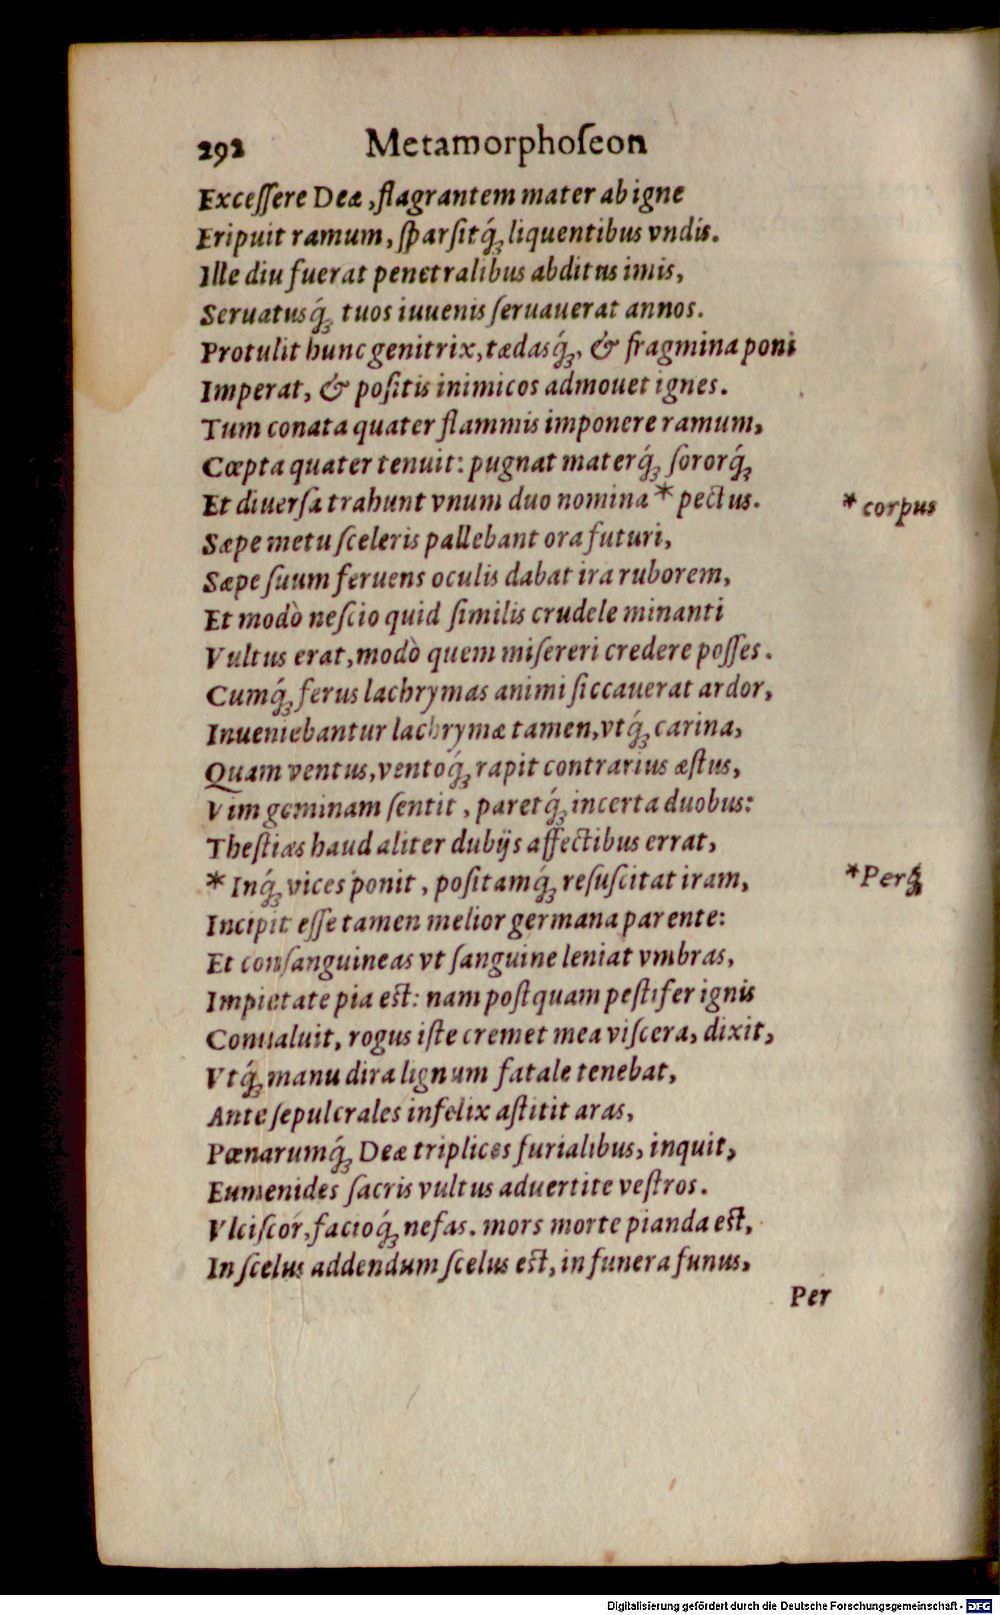 292 Metamorphoſeon
Exceſſere Deæ, flagrantem mater ab igne
Eripuit ramum, ſparſitq́ꝫ liquentibus vndis.
Ille diu fuerat penetralibus abditus imis,
Seruatusq́ꝫ tuos iuuenis ſeruauerat annos.
Protulit hunc genitrix, tædasq́ꝫ, & fragmina poni
Imperat, & poſitis inimicos admouet ignes.
Tum conata quater flammis imponere ramum,
Cœpta quater tenuit: pugnat materq́ꝫ ſororq́ꝫ
Et diuerſa trahunt vnum duo nomina * pectus. * corpus
Sæpe metu ſceleris pallebant ora futuri,
Sæpe ſuum feruens oculis dabat ira ruborem,
Et modò neſcio quid ſimilis crudele minanti
Vultus erat, modò quem miſereri credere poſſes.
Cumq́ꝫ ferus lachrymas animi ſiccauerat ardor,
Inueniebantur lachrymæ tamen, vtq́ꝫ carina,
Quam ventus, ventoq́ꝫ rapit contrarius æſtus,
Vim geminam ſentit, paretq́ꝫ incerta duobus:
Theſtias haud aliter dubijs affectibus errat,
* Inq́ꝫ vices ponit, poſitamq́ꝫ reſuſcitat iram, *Perq́ꝫ
Incipit eſſe tamen melior germana parente:
Et conſanguineas vt ſanguine leniat vmbras,
Impietate pia eſt: nam poſtquam peſtifer ignis
Conualuit, rogus iſte cremet mea viſcera, dixit,
Vtq́ꝫ manu dira lignum fatale tenebat,
Ante ſepulcrales infelix aſtitit aras,
Pœnarumq́ꝫ Deæ triplices furialibus, inquit,
Eumenides ſacris vultus aduertite veſtros.
Vlciſcor, facioq́ꝫ nefas. mors morte pianda eſt,
In ſcelus addendum ſcelus eſt, in funera funus,
Per
Digitalisierung gefördert durch die Deutsche Forschungsgemeinschaft - DFG